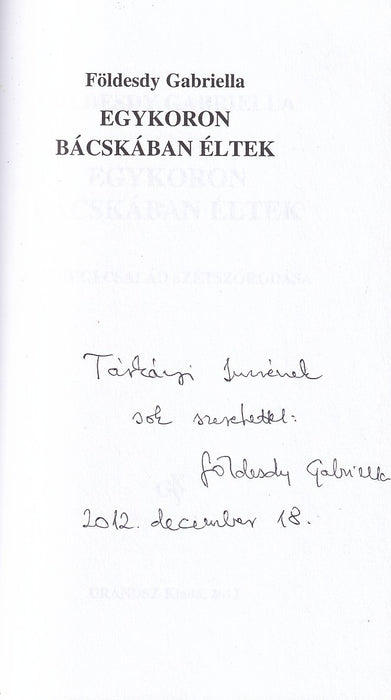 Földesdy Gabriella
EGYKORON
BÁCSKÁBAN ÉLTEK
Tárkányi Imrének
sok szeretettel:
Földesdy Gabriella
2012. december 18.